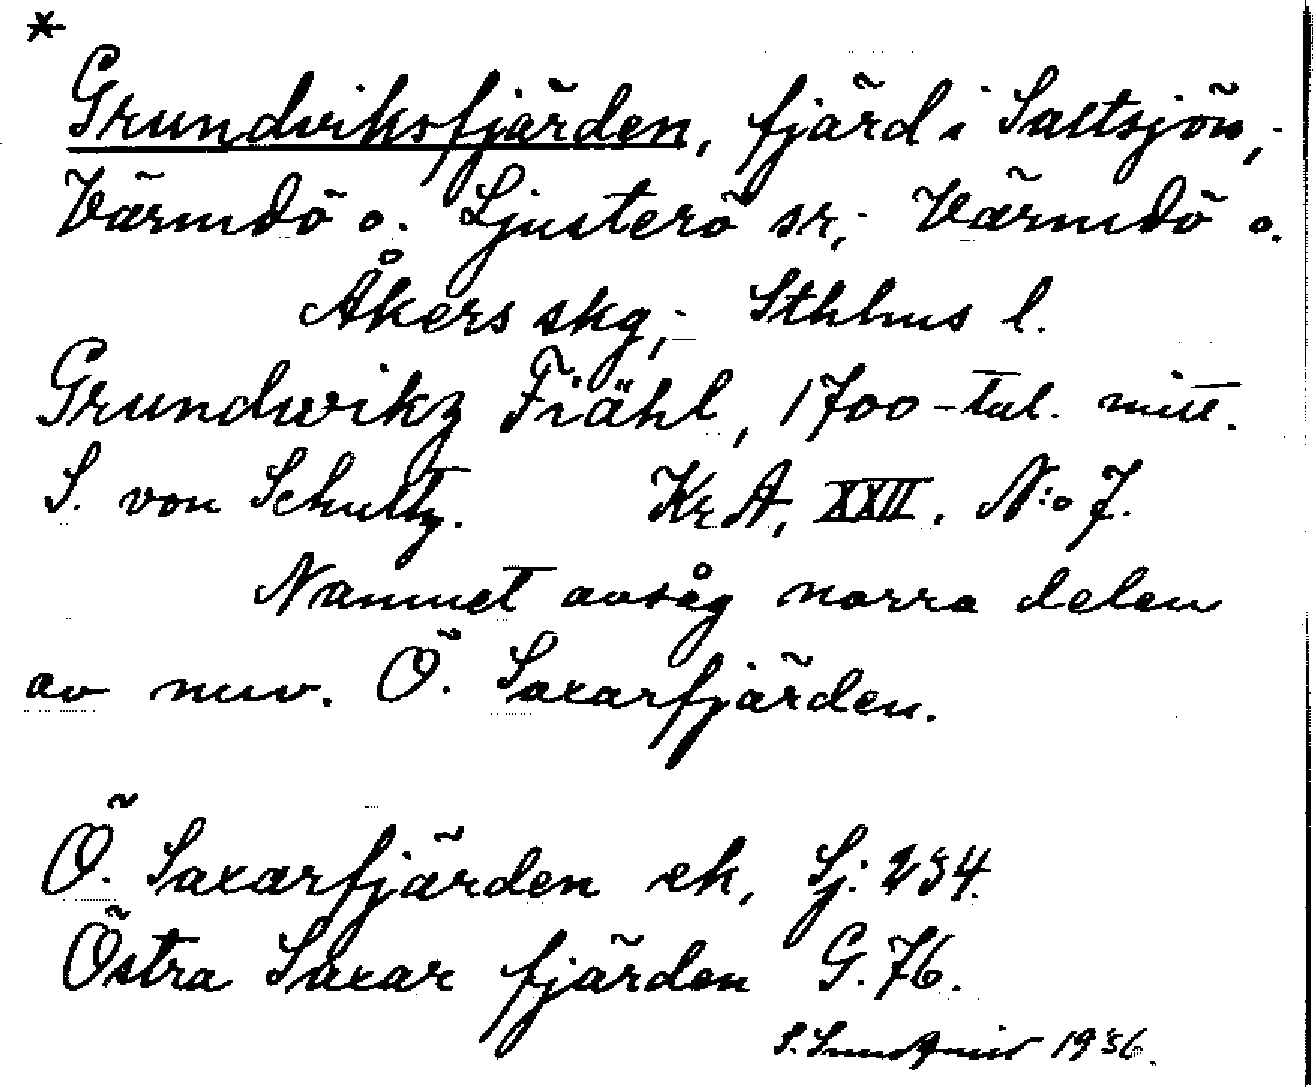 *
Grundviksfjärden, fjärd i Saltsjön,-
Värmdö o. Ljusterö sr,- Värmdö o.
Åkers skg,- Sthlms l.
Grundwikz Fiähl, 1700-tal. mitt.
S. von Schultz. Kr A, XXII. N:o 7.
Namnet avsåg norra delen
av nuv. Ö. Saxarfjärden.
Ö. Saxarfjärden ek, Sj: 234.
Östra Saxar fjärden G. 76.
S. Sundqvist 1936.